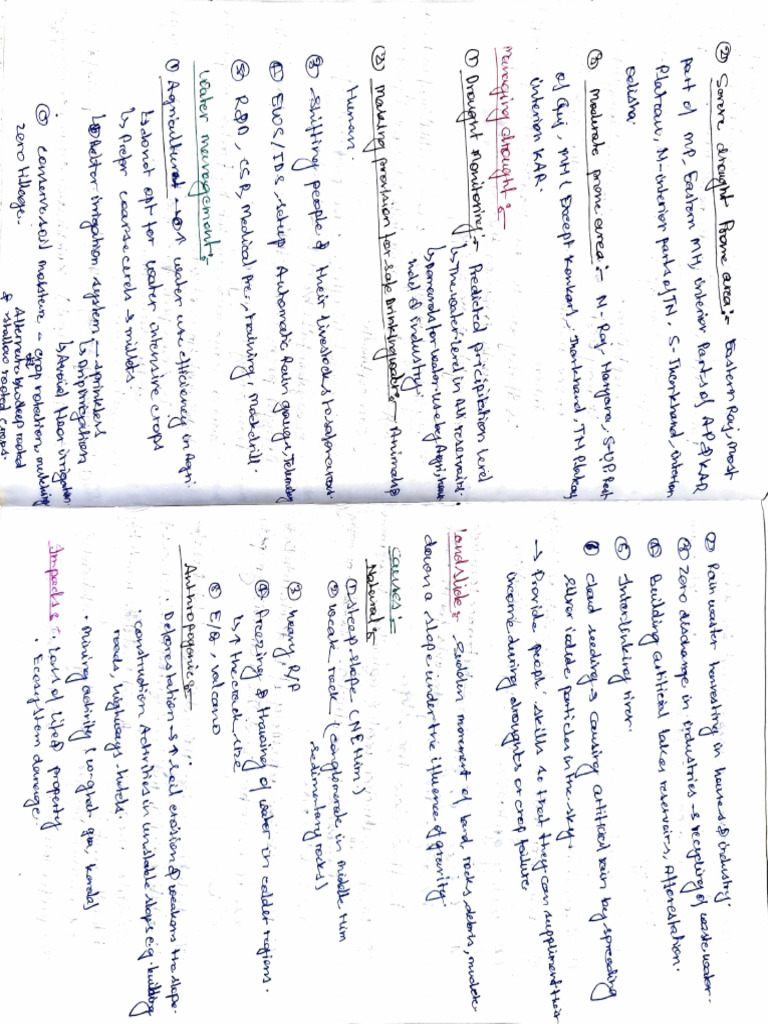 ② Severe drought Prone area:- Eastern Raj, Most
part of MP, Eastern MH, interior Parts of AP & KAR
Plateau, N-interior parts of TN, S-Jharkhand, interior
Odisha.
③ Moderate prone area:- N-Raj, Haryana, S-UP, Rest
of Guj, MH (Except Konkan), Jharkhand, TN Plateau,
interior KAR.
Managing drought:-
① Drought Monitoring:- Predicted pricipitation level
↳ The water level in All reservoirs.
↳ Demands for water use by Agri, house
hold & industry.
② Making provision for safe Drinking water- Animal &
Human.
③ Shifting people & their livestocks to safer areas.
④ EWS/IDS setup Automatic Rain gauges,
⑤ R&D, CSR, Medical Prep, training, Mockdrill.
Water management:-
① Agricultural → ↑ water use efficiency in Agri.
↳ do not opt for water intensive crops
↳ Prefer coarse cereals → millets.
↳ Better irrigation system → sprinklers
↳ Drip irrigation
↳ Avoid flood irrigation
⑥ conserve soil moisture - crop rotation, mulching
zero tillage.
Alternate b/w deep rooted
& shallow rooted crops.
② Rain water harvesting in houses & industry.
③ Zero discharge in industries → recycling of waste water.
④ Building artificial lakes, reservoirs, Afforestation.
⑤ Inter-linking river.
⑥ cloud seeding → causing artificial rain by spreading
silver iodide particles in the sky.
→ Provide people skills so that they can suppliment their
income during droughts or crop failure
Landslide: Sudden movement of land, rocks, debris,
down a slope under the influence of gravity.
causes:-
Natural:-
① steep slope (NE Him.)
② weak rock (conglomerate in middle Him
sedimentary rocks)
③ heavy R/F
④ freezing & thawing of water in colder regions.
↳ ↑ the crack size
⑤ E/Q, volcano
Anthropogenic:-
· Deforestation → ↑ soil erosion & weakens the slope.
· construction Activities in unstable slops eg. building
roads, highways, hotels.
· Mining activity (w-ghat, goa, kerala)
Impacts: · Loss of life & property
· Ecosystem damage.